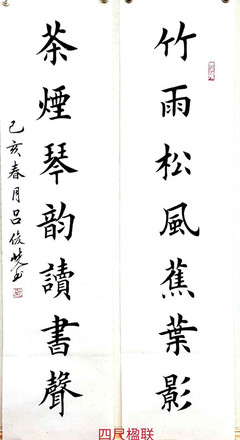 竹雨松風蕉葉影
茶煙琴韵讀書聲
己亥春月吕俊
四尺楹联